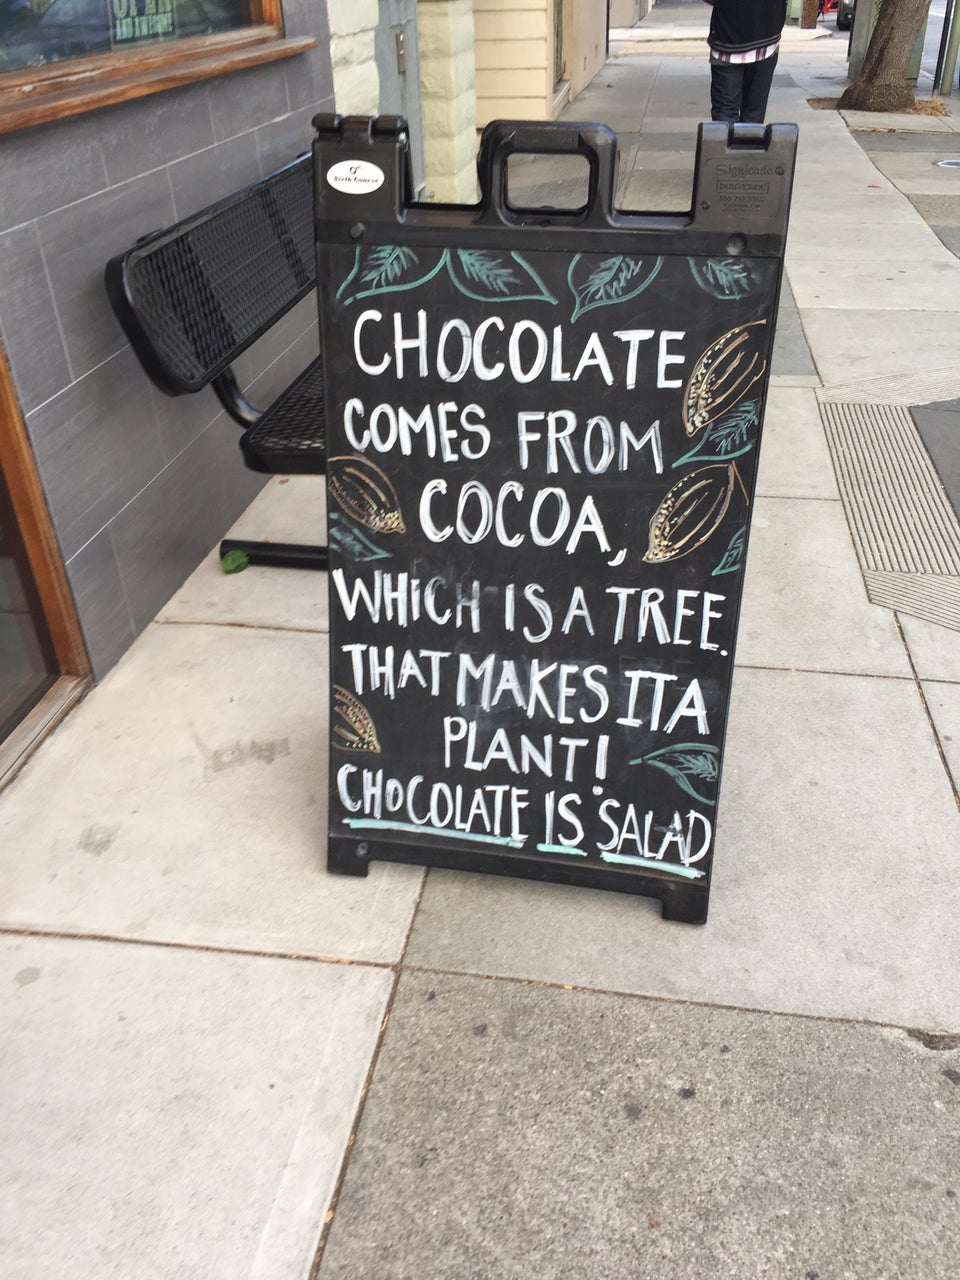 OPEN
AND AWESOME
Sixth Course
Signicade
PLASTICADE
CHOCOLATE
COMES FROM
COCOA,
WHICH IS A TREE.
THAT MAKES IT A
PLANT!
CHOCOLATE IS SALAD